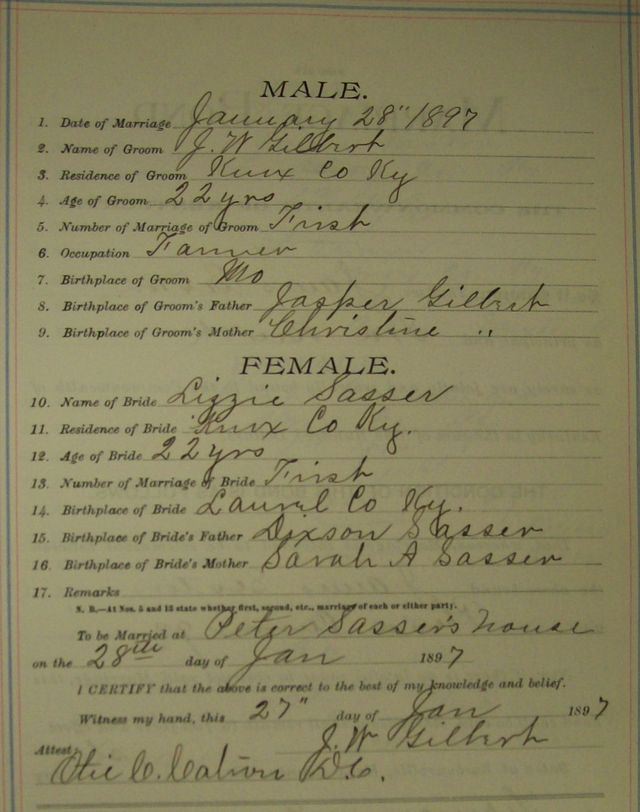 MALE.
1. Date of Marriage January 28" 1897
2. Name of Groom J. W Gilbert
3. Residence of Groom Knox Co Ky
4. Age of Groom 22 yrs
5. Number of Marriage of Groom First
6. Occupation Farmer
7. Birthplace of Groom Mo
8. Birthplace of Groom's Father Jasper Gilbert
9. Birthplace of Groom's Mother Christine "
FEMALE.
10. Name of Bride Lizzie Sasser
11. Residence of Bride Knox Co Ky.
12. Age of Bride 22 yrs
13. Number of Marriage of Bride First
14. Birthplace of Bride Laurel Co Ky.
15. Birthplace of Bride's Father Dixson Sasser
16. Birthplace of Bride's Mother Sarah A Sasser
17. Remarks
N. B.—At Nos. 5 and 13 state whether first, second, etc., marriage of each or either party.
To be Married at Peter Sasser's house
on the 28th day of Jan 1897
I CERTIFY that the above is correct to the best of my knowledge and belief.
Witness my hand, this 27" day of Jan 1897
J. W Gilbert
Attest
C. D.C.